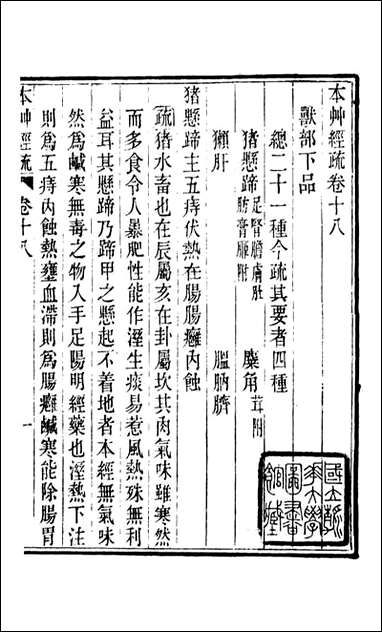 本艸經疏卷十八
獸部下品
總二十一種今疏其要者四種
猪懸蹄 足腎膽膚肚肪膏屎附 麋角 茸附
獺肝 膃肭臍
猪懸蹄主五痔伏熱在腸腸癰內蝕
疏猪水畜也在辰屬亥在卦屬坎其肉氣味雖寒然
而多食令人暴肥性能作溼生痰易惹風熱殊無利
益耳其懸蹄乃蹄甲之懸起不着地者本經無氣味
然爲鹹寒無毒之物入手足陽明經藥也溼熱下注
則爲五痔內蝕熱壅血滯則爲腸癰鹹寒能除腸胃
本艸經疏 卷十八 一
國立
大學
圖書
館藏